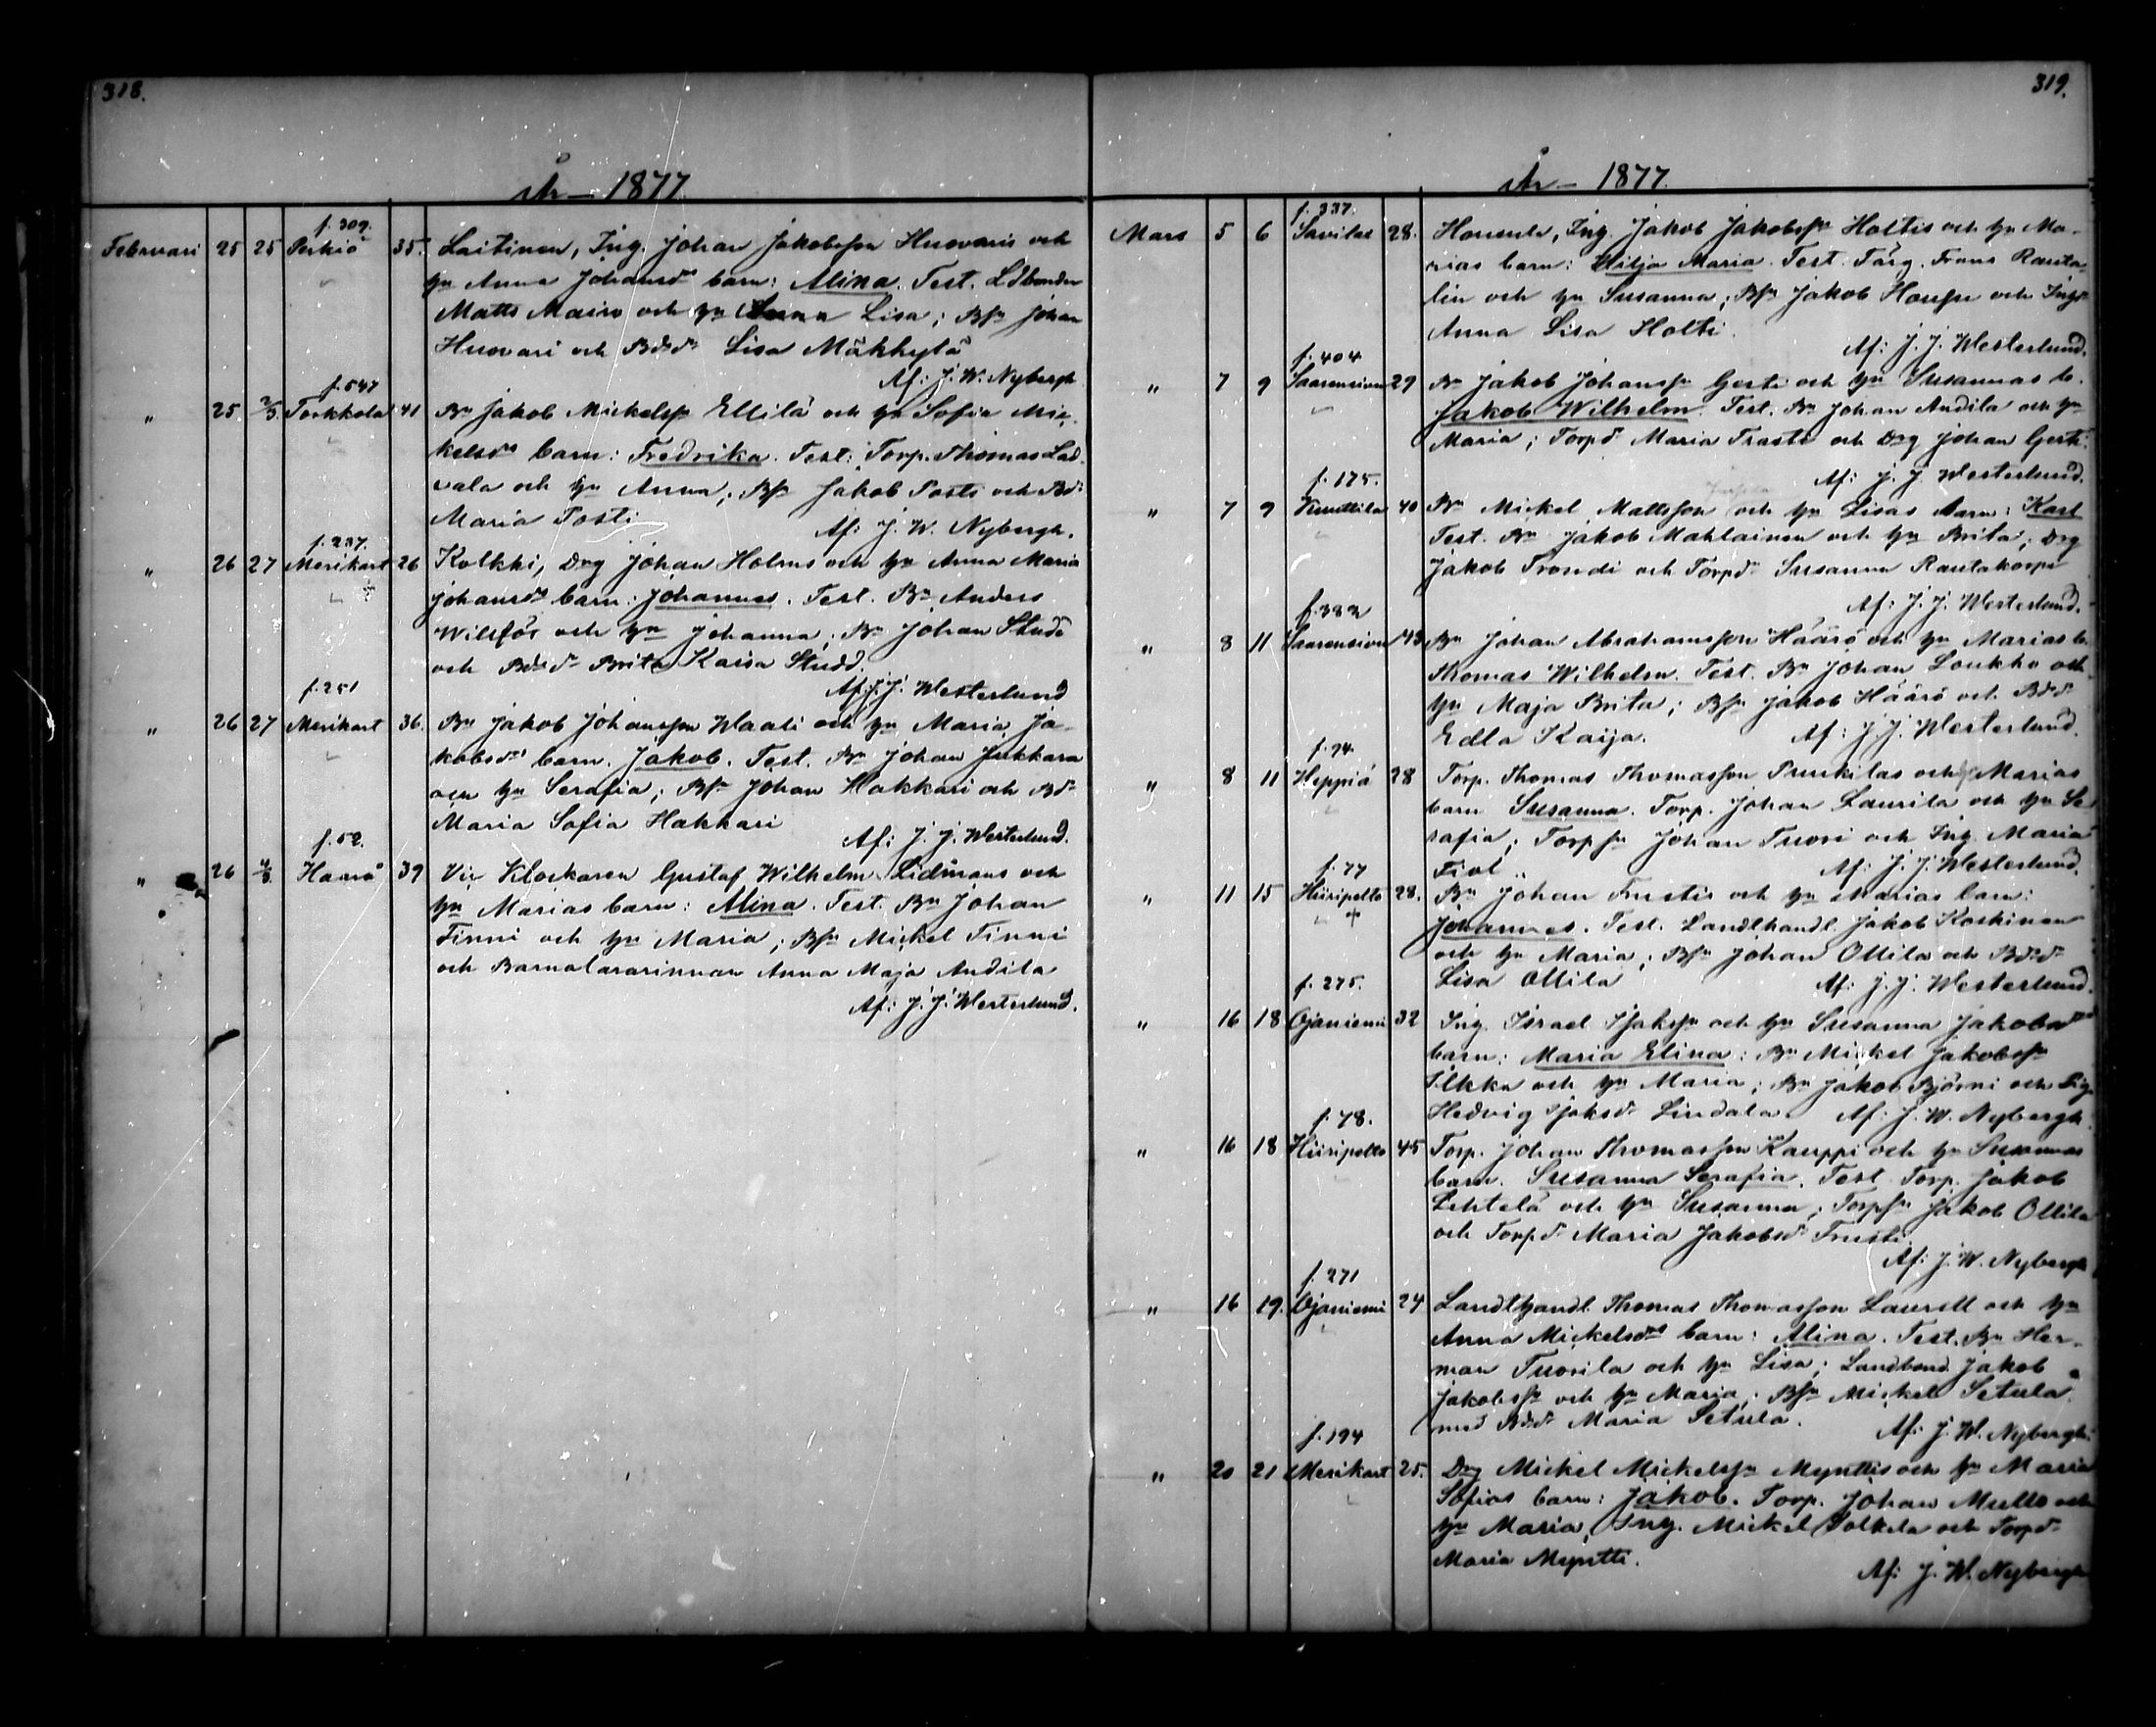 318.
År — 1877.
f. 309.
Februari 25 25 Perkiö 35. Laitinen, Ing. Johan Jakobsson Huovaris och
hn Anna Johansds barn: Alina. Test. Ldbonden
Matts Mairo och hn Anna Lisa; Bsn Johan
Huovari och Bdsdr Lisa Mäkkylä
Af: J. W. Nybergh
f. 547
" 25. 2/3. Torkkola 41 Bn Jakob Mickelsson Ellilä och hn Sofia Mic-
kelsdrs barn: Fredrika. Test: Torp. Thomas Lad-
vala och hn Anna; Bsn Jakob Posti och Bdr
Maria Posti
Af: J. W. Nybergh.
f. 237.
" 26 27 Merikart 26 Kolkki, Drg Johan Holms och hn Anna Maria
Johansds barn: Johannes. Test. Bn Anders
Willför och hn Johanna; Bn Johan Studd
och Bdsdr Brita Kaisa Studd.
Af: J. J. Westerlund
f. 251
" 26 27 Merikart 36. Bn Jakob Johansson Waali och hn Maria Ja-
kobsds barn. Jakob. Test. Bn Johan Jukkara
och hn Serafia; Bsn Johan Hakkari och Bdr
Maria Sofia Hakkari
Af: J. J. Westerlund.
f. 52.
" 26 4/3. Haarå 39 Vic Klockaren Gustaf Wilhelm Lidmans och
hn Marias barn: Alina. Test. Bn Johan
Finni och hn Maria; Bsn Mickel Finni
och Barnalärarinnan Anna Maja Andila
Af: J. J. Westerlund.
319.
År — 1877.
f. 337.
Mars 5 6 Savilax 28. Honsula, Ing. Jakob Jakobsson Holtis och hn Ma-
rias barn: Hilja Maria. Test. Färg. Frans Ranta-
lin och hn Susanna; Bsn Jakob Houni och Ingn
Anna Lisa Holti.
Af: J. J. Westerlund.
f. 404
" 7 9 Saarensivu 29 Bn Jakob Johansson Gerts och hn Susannas b.
Jakob Wilhelm. Test. Bn Johan Andila och hn
Maria; Torpdr Maria Trasti och Drg Johan Gerts.
Af: J. J. Westerlund.
f. 175.
" 7 9 Kuuttila 40 Bn Mickel Mattsson och hn Lisas barn: Karl
Test. Bn Jakob Mahlainen och hn Brita; Drg
Jakob Trondi och Torpdr Susanna Rautakorpi
Af: J. J. Westerlund.
f. 382
" 8 11 Saarensivu 43 Bn Johan Abrahamsson Häärö och hn Marias b.
Thomas Wilhelm. Test. Bn Johan Loukko och
hn Maja Brita; Bsn Jakob Häärö och Bdsdr
Edla Kaija.
Af: J. J. Westerlund.
f. 94.
" 8 11 Heppiö 28 Torp. Thomas Thomasson Prukilas och Marias
barn Susanna. Torp. Johan Laurila och hn Se-
rafia; Torpsn Johan Tuori och Ing. Maria
Fivl..
Af: J. J. Westerlund.
f. 77
" 11 15 Hiiripelto 28. Bn Johan Frustis och hn Marias barn:
Johannes. Test. Landthandl. Jakob Koskinen
och hn Maria; Bsn Johan Ollila och Bdsdr
Lisa Ollila
Af: J. J. Westerlund.
f. 275.
" 16 18 Ojaniemi 32 Ing. Israel Isaksson och hn Susanna Jakobsds
barn: Maria Elina: Bn Mickel Jakobsson
Ilkka och hn Maria; Bn Jakob Björni och Pig.
Hedvig Isaksdr Lindala
Af: J. W. Nybergh.
f. 78.
" 16 18 Hiiripelto 45 Torp. Johan Thomasson Kauppi och hn Susannas
barn. Susanna Serafia. Test. Torp. Jakob
Lehtelä och hn Susanna; Torpsn Jakob Ollila
och Torpdr Maria Jakobsdr Frusti
Af: J. W. Nybergh
f. 271
" 16 19. Ojaniemi 24 Landthandl. Thomas Thomasson Laurell och hn
Anna Mickelsds barn: Alina. Test. Bn Her-
man Tuorila och hn Lisa; Landbond Jakob
Jakobsson och hn Maria; Bsn Mickel Setula
med Bdsdr Maria Setula.
Af: J. W. Nybergh.
f. 194
" 20 21 Merikart 25. Drg Mickel Mickelsson Mynttis och hn Maria
Sofias barn: Jakob. Torp. Johan Mullo och
hn Maria, Ing. Mickel Polkela och Torpdr
Maria Myntti.
Af: J. W. Nybergh